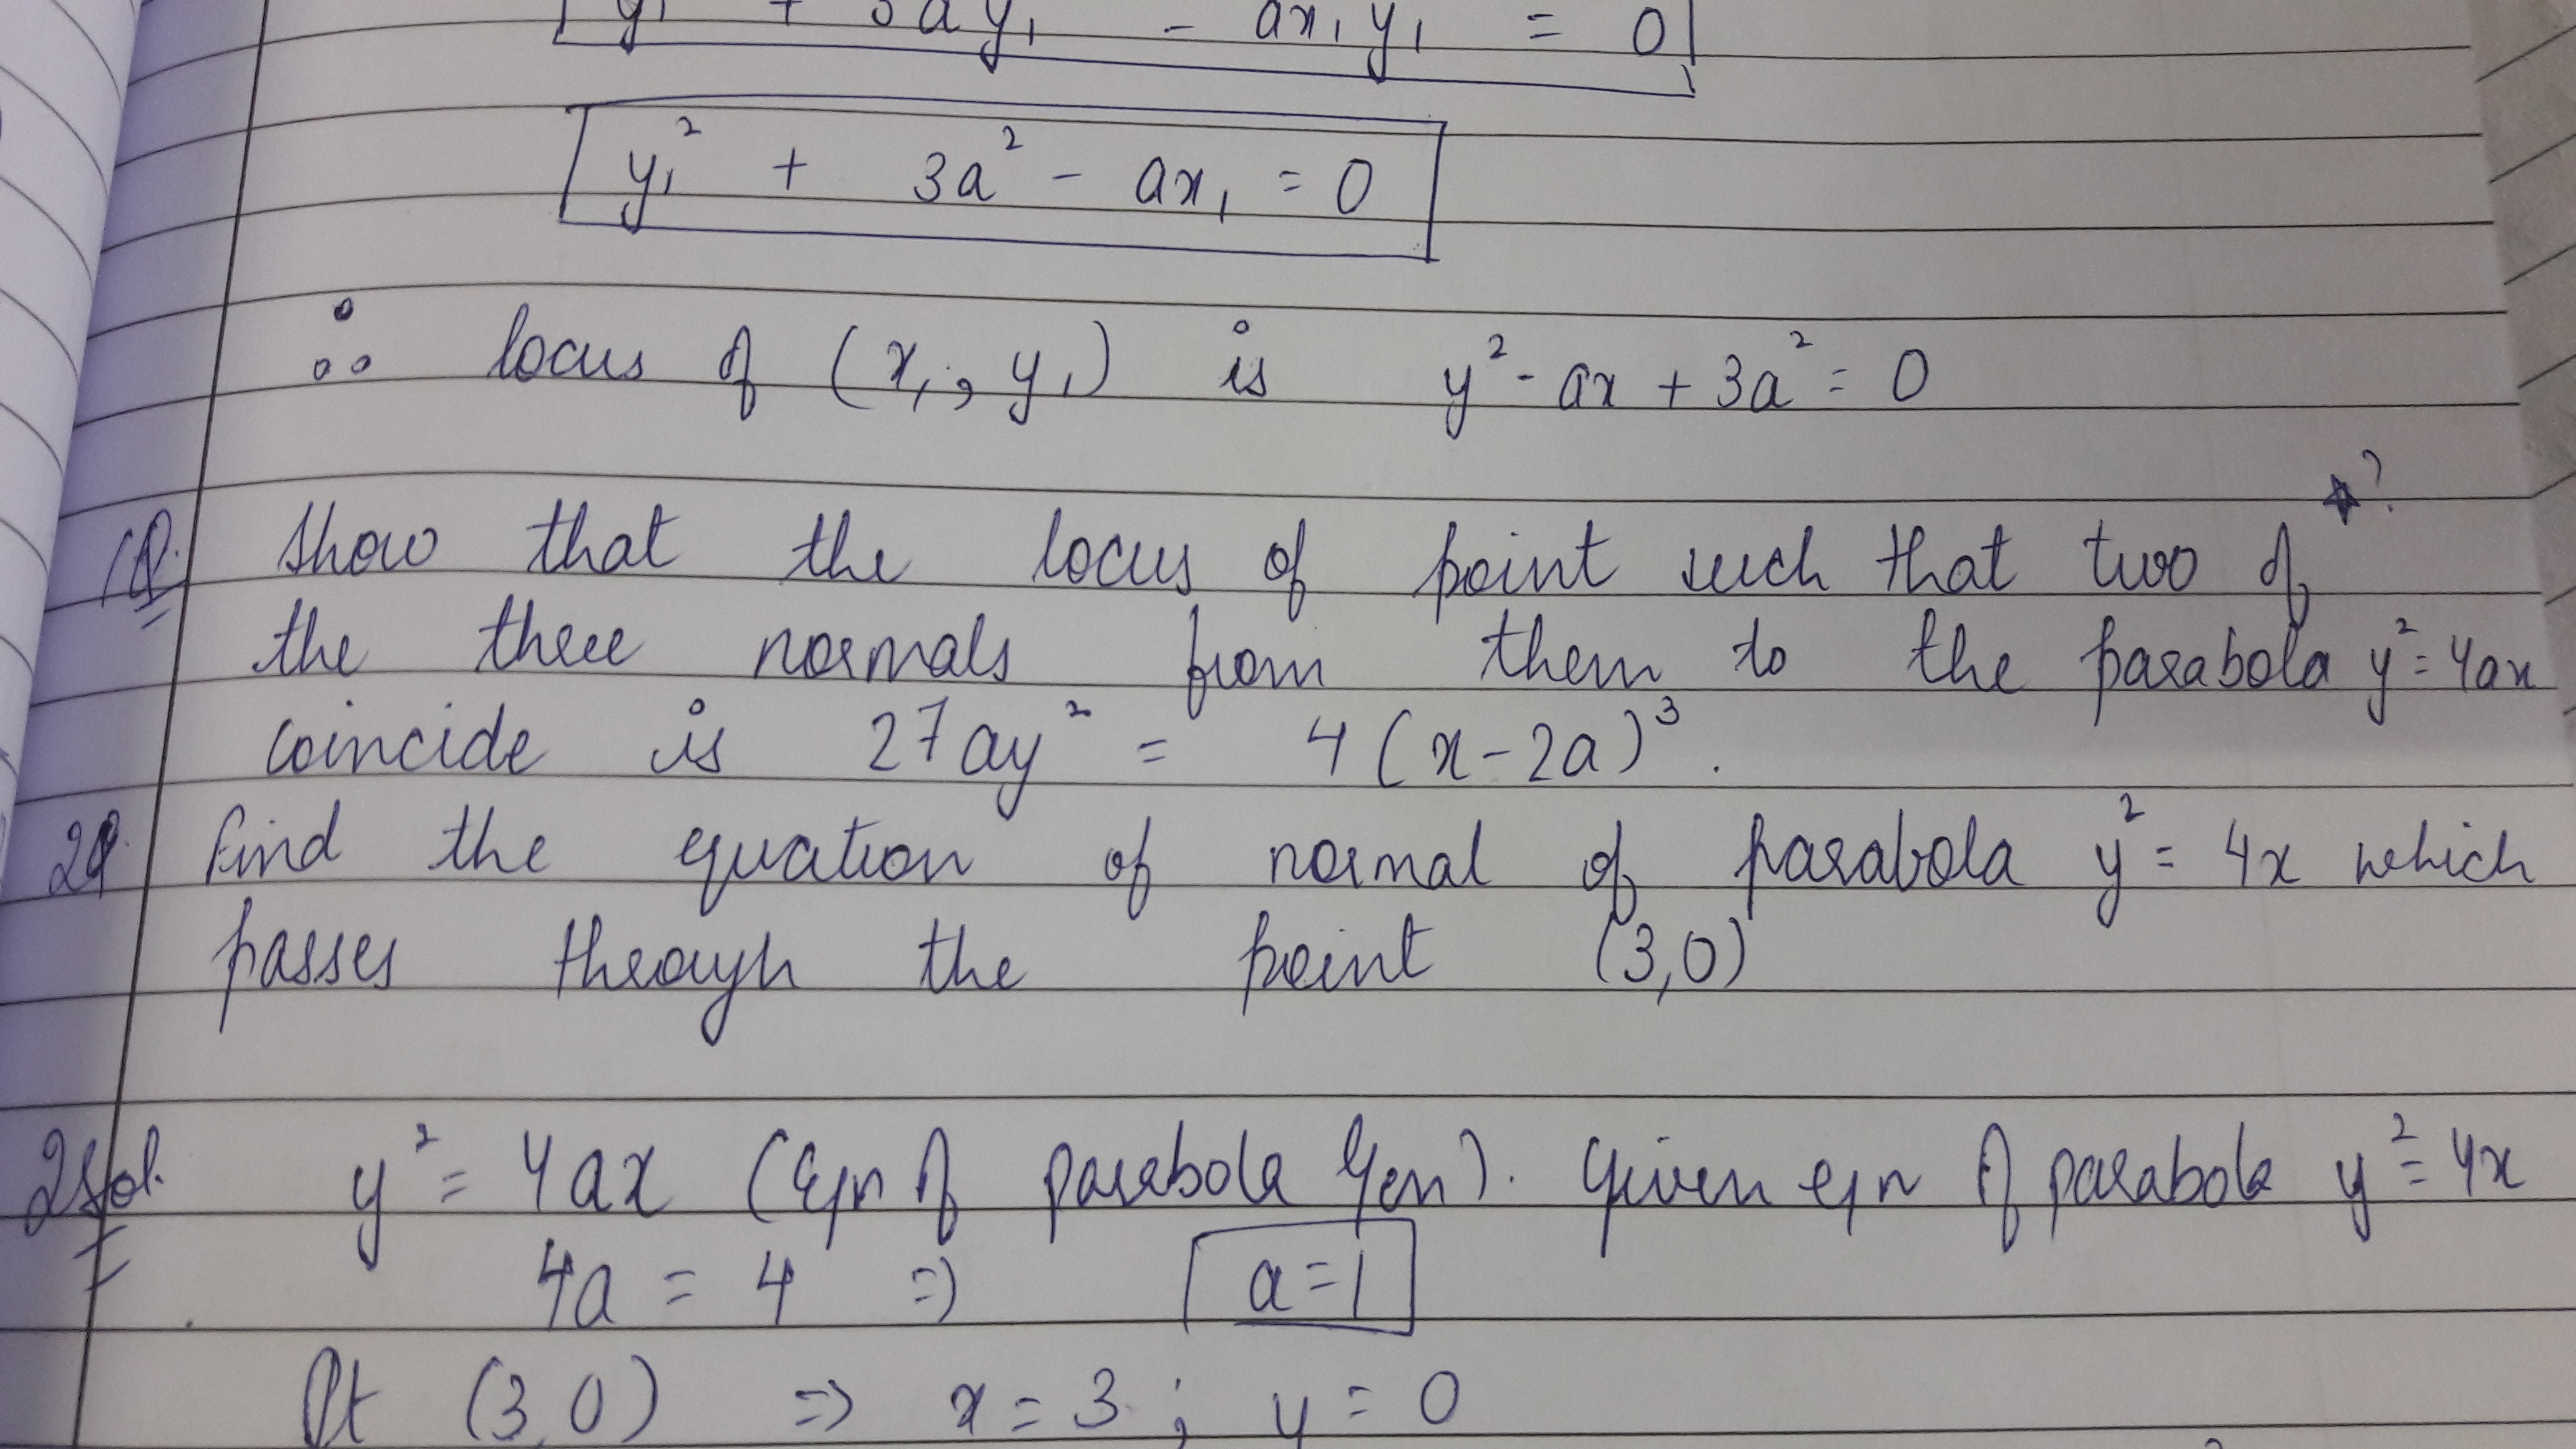 y₁ + 3ay₁ - ax₁y₁ = 0
y₁² + 3a² - ax₁ = 0
∴ locus of (x₁, y₁) is y² - ax + 3a² = 0
1Q. Show that the locus of point such that two of ★?
the three normals from them to the parabola y² = 4ax
coincide is 27ay² = 4(x-2a)³.
2Q. Find the equation of normal of parabola y² = 4x which
passes through the point (3,0)
2Sol. y² = 4ax (Eqn of parabola Gen). Given eqn of parabola y² = 4x
4a = 4 => a=1
Pt (3,0) => x = 3 ; y = 0